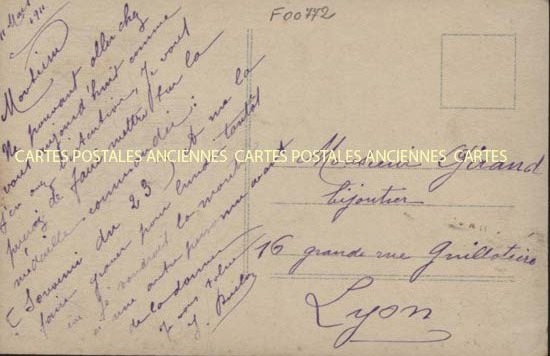 11 Mars
1911
F00772
Monsieur
Ne pouvant aller chez
vous aujourd'hui comme
j'en ai l'intention, Je vous
prierai de faire mettre sur la
médaille commandée :
(Souvenir du 23) et me la
faire graver pour lundi tantôt
Je voudrais la montrer
à une autre personne avant
de la donner
Je vous salue
J.
CARTES POSTALES ANCIENNES CARTES POSTALES ANCIENNES CARTES POSTALES ANCIENNES
Monsieur Girand
bijoutier
16 grande rue Guillotière
Lyon